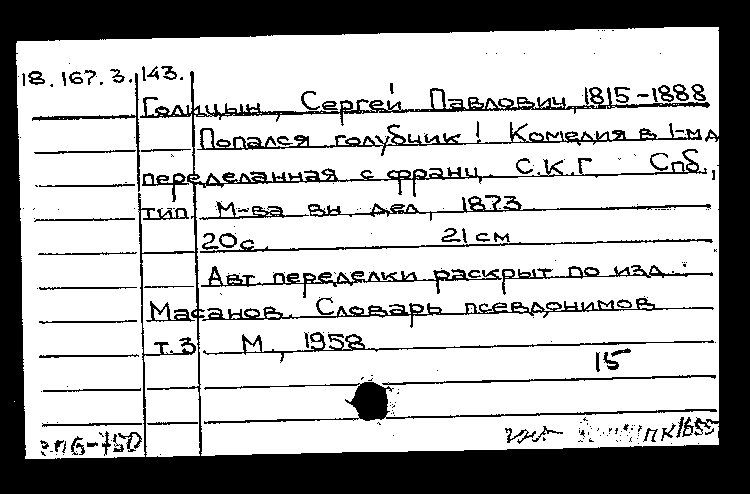 18.167.3.143.
Голицын, Сергей Павлович, 1815-1888
Попался голубчик! Комедия в 1-м д
переделанная с франц. С.К.Г. Спб.,
тип. М-ва вн. дел, 1873.
20с. 21см.
Авт. переделки раскрыт по изд.:
Масанов. Словарь псевдонимов
т.3. М., 1958.
15
-750